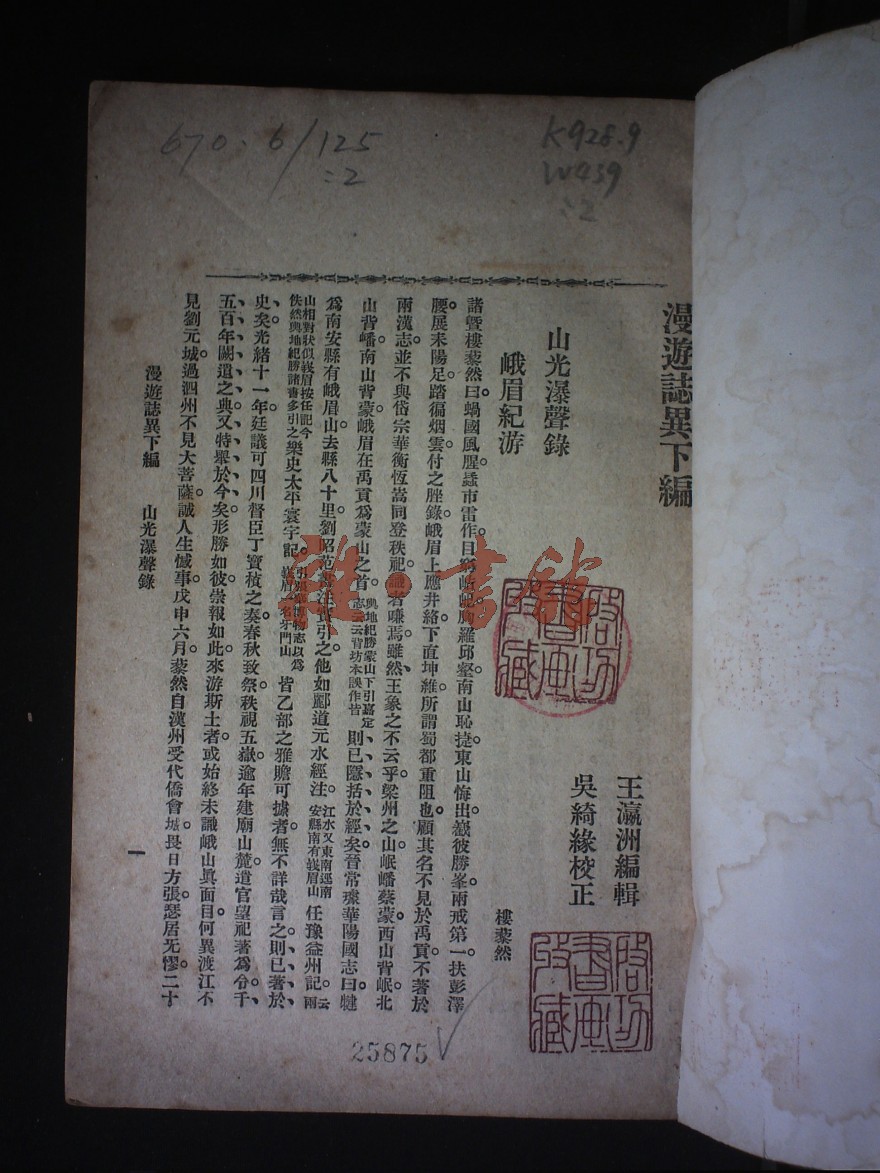 670.6/125
:2
K928.9
W439
:2
漫遊誌異下編
王瀛洲編輯
吳綺緣校正
山光瀑聲錄
峨眉紀游
樓藜然
諸暨樓藜然曰蝸國風腥蟁市雷作目窮嶮巇胸羅邱壑南山恥捷東山悔出巖彼勝峯兩戒第一扶彭澤
腰展耒陽足踏徧烟雲付之脞錄峨眉上應井絡下直坤維所謂蜀都重阻也顧其名不見於禹貢不著於
兩漢志並不與岱宗華衡恆嵩同登秩祀議者嗛焉雖然王象之不云乎梁州之山岷嶓蔡蒙西山背岷北
山背嶓南山背蒙峨眉在禹貢爲蒙山之首輿地紀勝蒙山下引嘉定志云云背坊本誤作皆則已隱括於經矣晉常璩華陽國志曰犍
爲南安縣有峨眉山去縣八十里劉昭范書注實引之他如酈道元水經注江水又東南逕南安縣南有峩眉山任豫益州記云兩
山相對狀似峩眉按任記今佚然輿地紀勝諸書多引之樂史太平寰宇記引張華博物志以爲峩眉一名牙門山皆乙部之雅贍可據者無不詳哉言之則已著於
史矣光緒十一年廷議可四川督臣丁寶楨之奏春秋致祭秩視五嶽逾年建廟山麓遣官望祀著爲令千
五百年闕遺之典又特舉於今矣形勝如彼崇報如此來游斯土者或始終未識峨山眞面目何異渡江不
見劉元城過泗州不見大菩薩誠人生憾事戊申六月藜然自漢州受代僑會城畏日方張瑟居无憀二十
漫遊誌異下編　山光瀑聲錄
一
25875
啓功書畫改藏